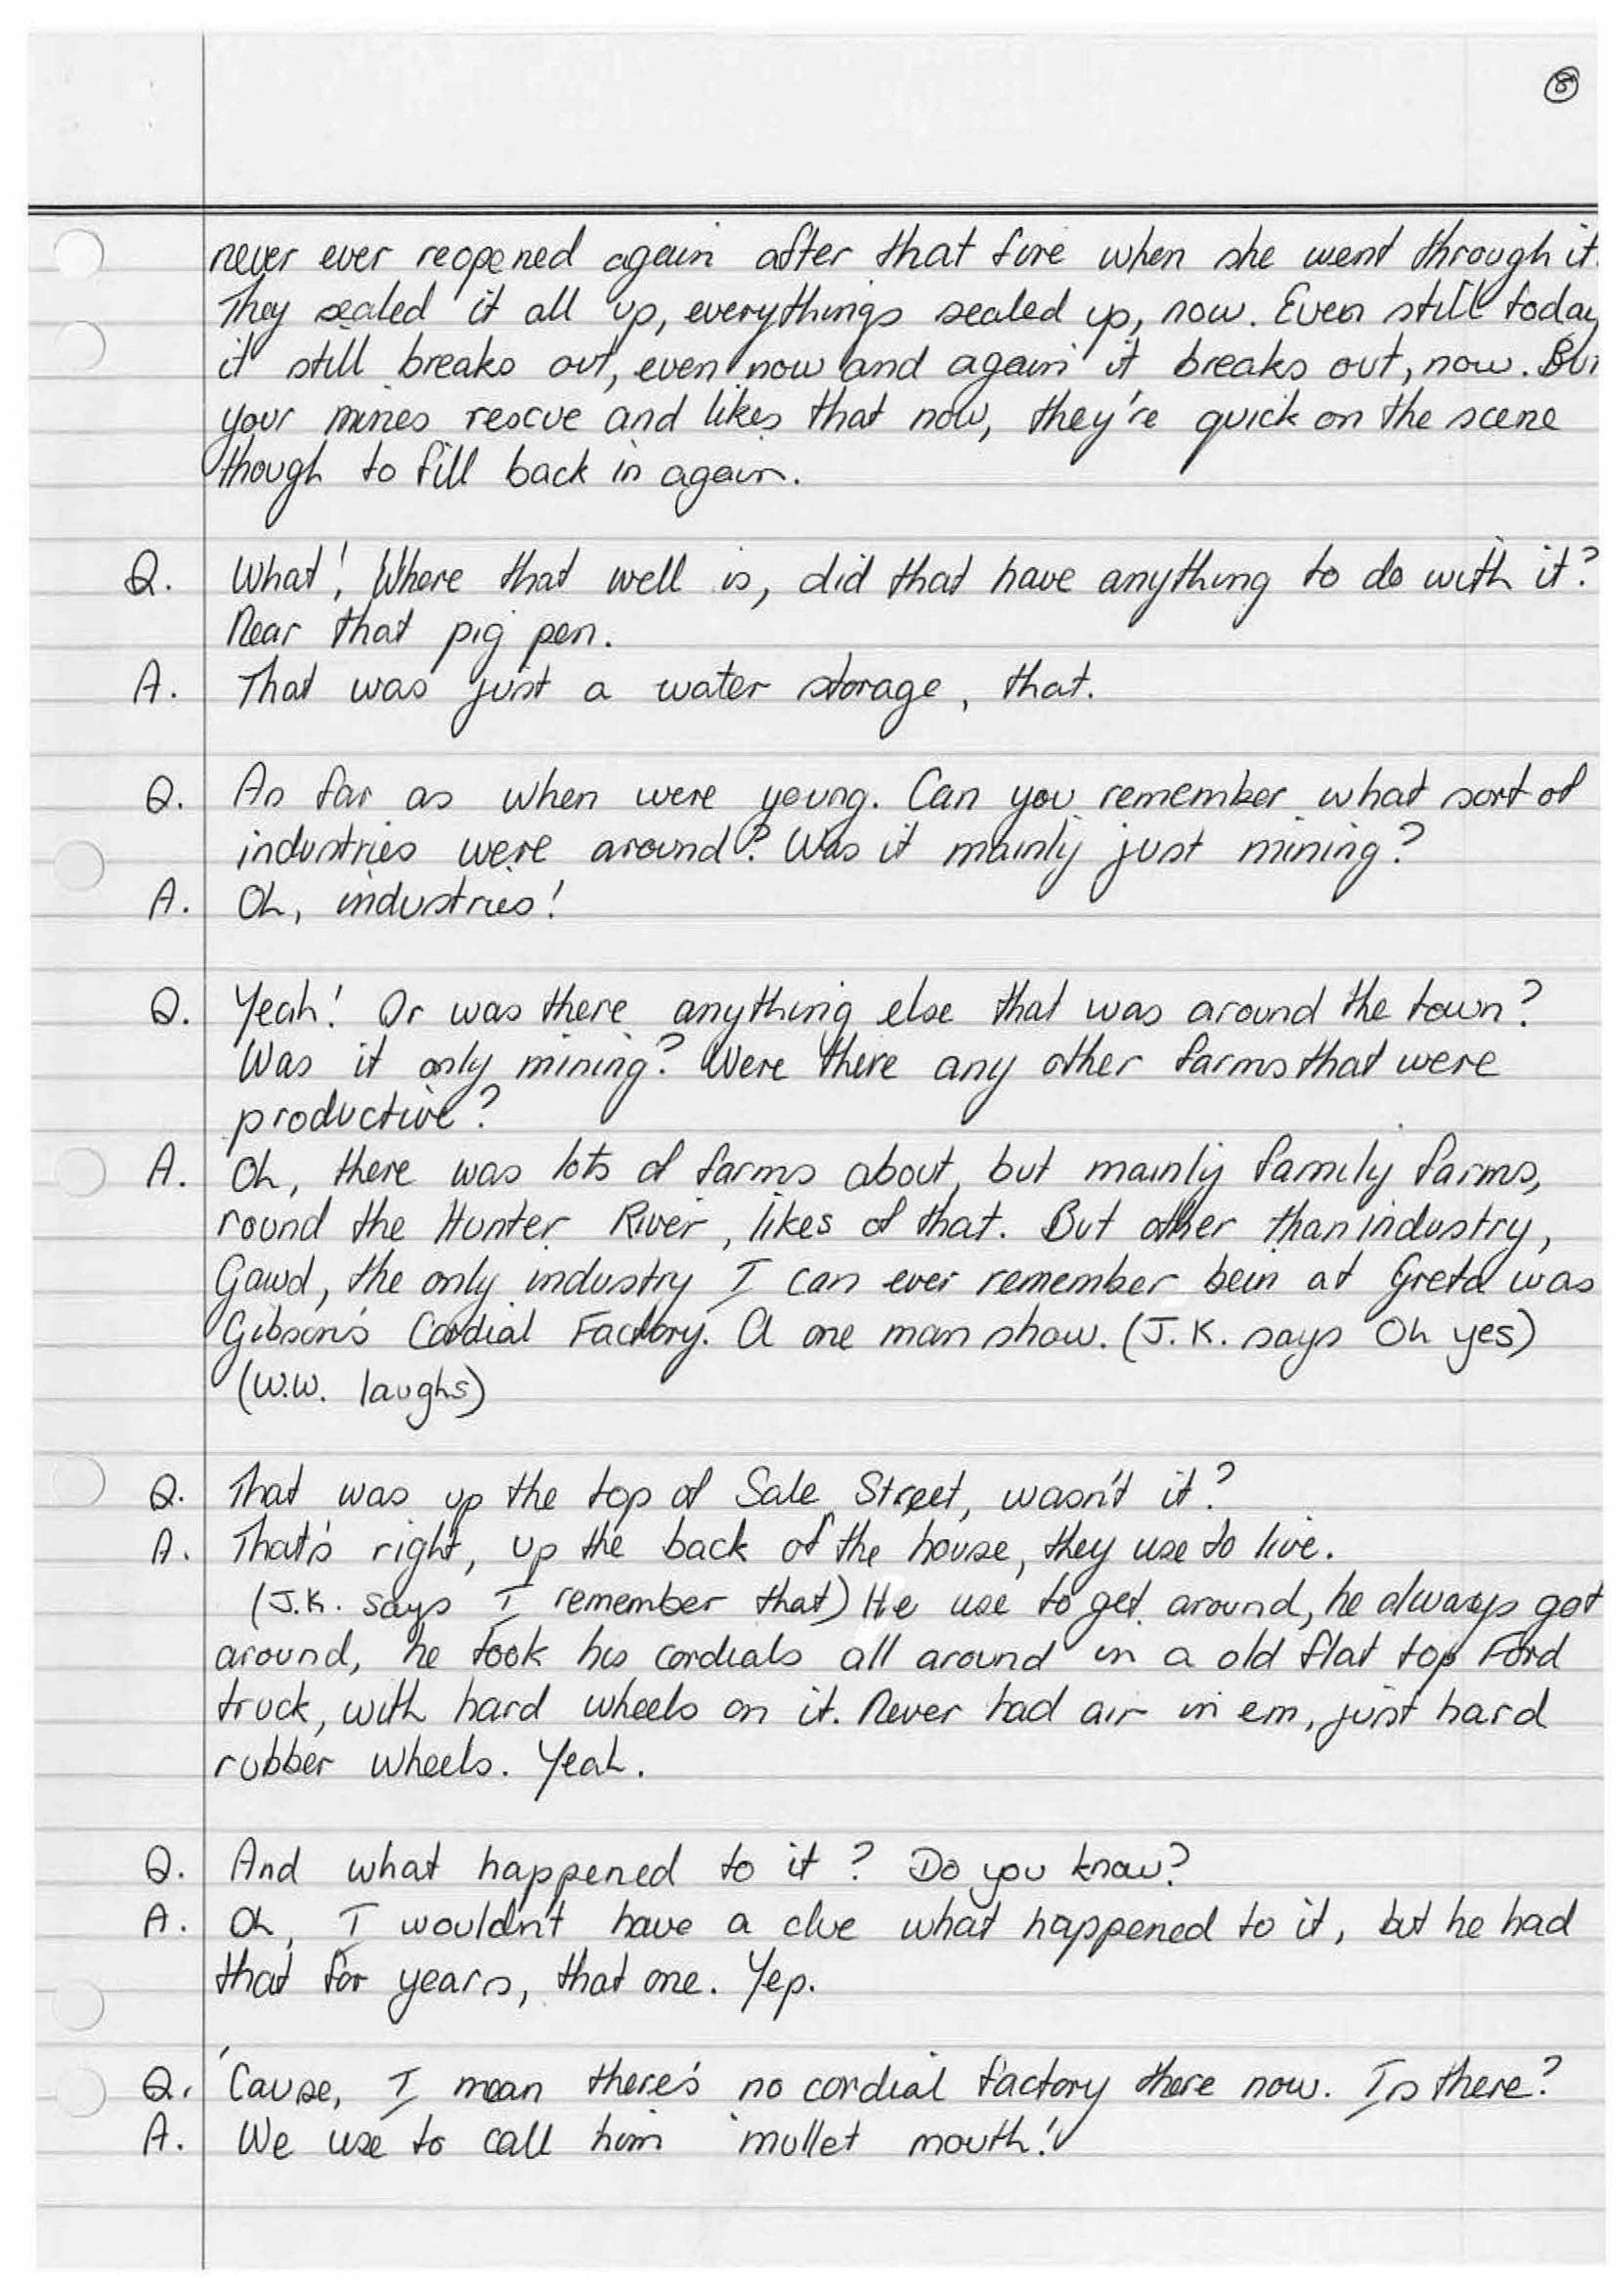 8
never ever reopened again after that fire when she went through it.
They sealed it all up, everythings sealed up, now. Even still today
it still breaks out, even now and again it breaks out, now. But
your mines rescue and likes that now, they're quick on the scene
though to fill back in again.
Q. What! Where that well is, did that have anything to do with it?
Near that pig pen.
A. That was just a water storage, that.
Q. As far as when were young. Can you remember what sort of
industries were around? Was it mainly just mining?
A. Oh, industries!
Q. Yeah! Or was there anything else that was around the town?
Was it only mining? Were there any other farms that were
productive?
A. Oh, there was lots of farms about, but mainly family farms,
round the Hunter River, likes of that. But other than industry,
Gawd, the only industry I can ever remember bein at Greta was
Gibson's Cordial Factory. A one man show. (J.K. says Oh yes)
(W.W. laughs)
Q. That was up the top of Sale Street, wasn't it?
A. That's right, up the back of the house, they use to live.
(J.K. says I remember that) He use to get around, he always got
around, he took his cordials all around in a old flat top Ford
truck, with hard wheels on it. Never had air in em, just hard
rubber wheels. Yeah.
Q. And what happened to it? Do you know?
A. Oh, I wouldn't have a clue what happened to it, but he had
that for years, that one. Yep.
Q. 'Cause, I mean there's no cordial factory there now. Is there?
A. We use to call him 'mullet mouth!'